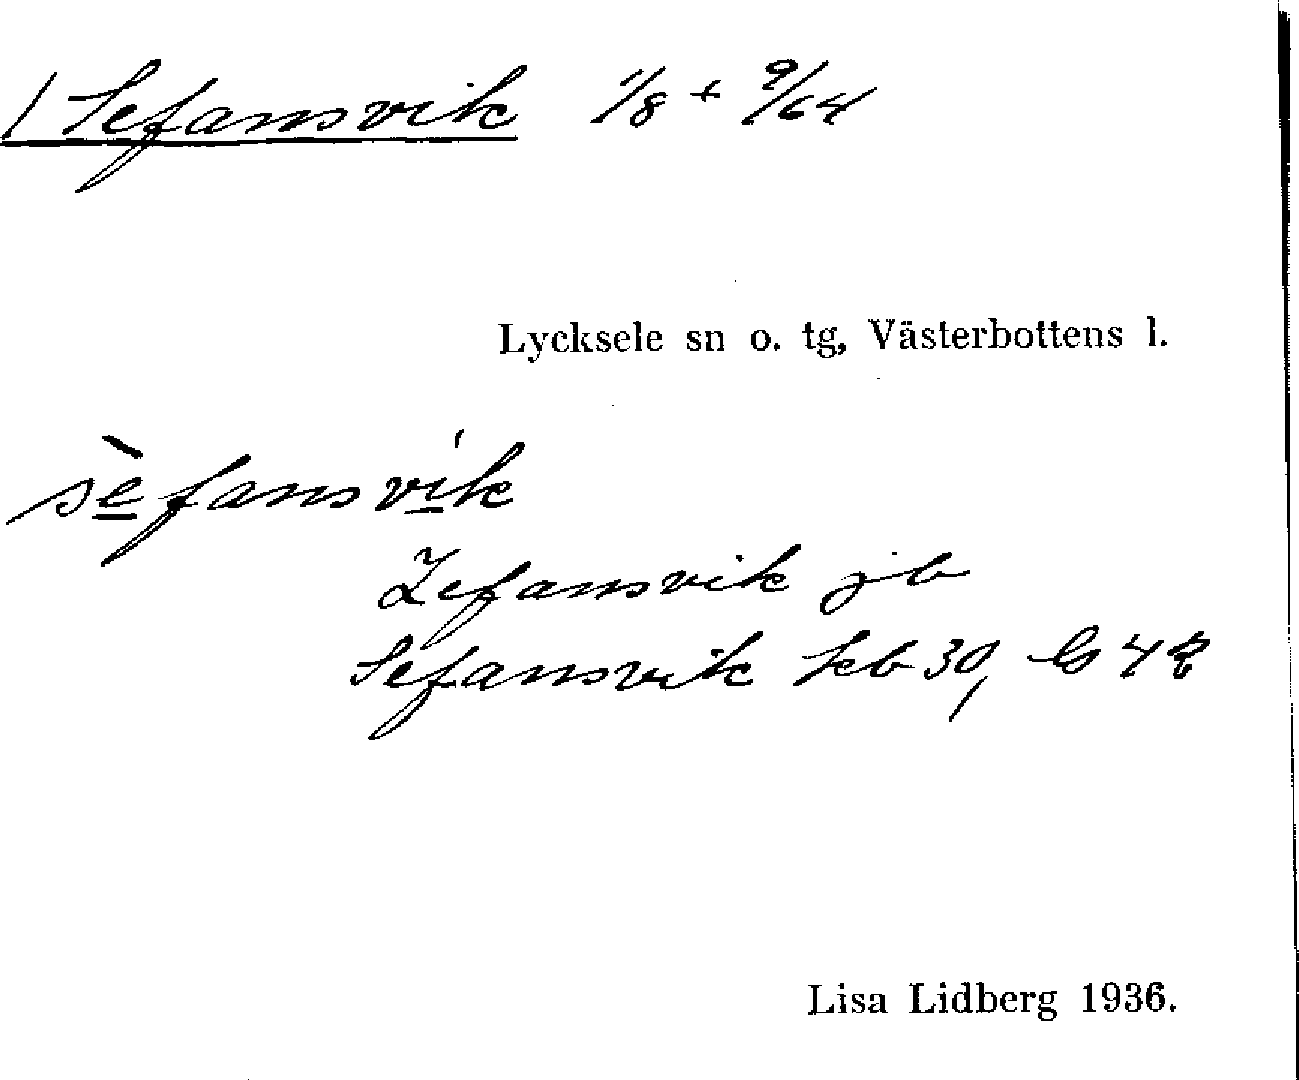 1 Sefansvik 1/8 + 9/64
Lycksele sn o. tg, Västerbottens l.
sè̱fansvi̱k
Zefansvik jb
Sefansvik kb 30,
Lisa Lidberg 1936.